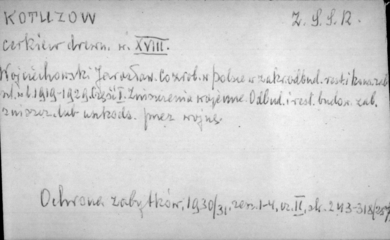 KOTUZOW Z. S. S. R.
cerkiew drewn. w. XVIII.
Wojciechowski Jarosław. Co zrob. w Polsce w zakr. odbud. rest. i konserw. zab.
od r. 1919-1929. Część I. Zniszczenia wojenne. Odbud. i rest. budow. zab.
zniszcz. lub uszkodz. przez wojnę.
Ochrona zabytków, 1930/31. zesz. 1-4, cz. II, str. 273-318